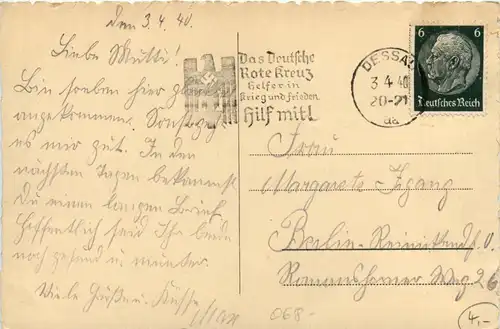 den 3.4.40.
Liebe Mutti!
Bin soeben hier
angekommen. Sonst
es mir gut. In den
nächsten Tagen bekommst
Du einen langen Brief.
Hoffentlich seid Ihr beide
noch gesund u. munter.
Viele Grüße u. Küsse
Das Deutsche
Rote Kreuz
Helfer in
Krieg und Frieden
Hilf mit!
DESSAU
3.4.40
20-21
da
6 6
Deutsches Reich
Frau
Margarete
Berlin-
Romanshorner Weg 26
068-
4,-